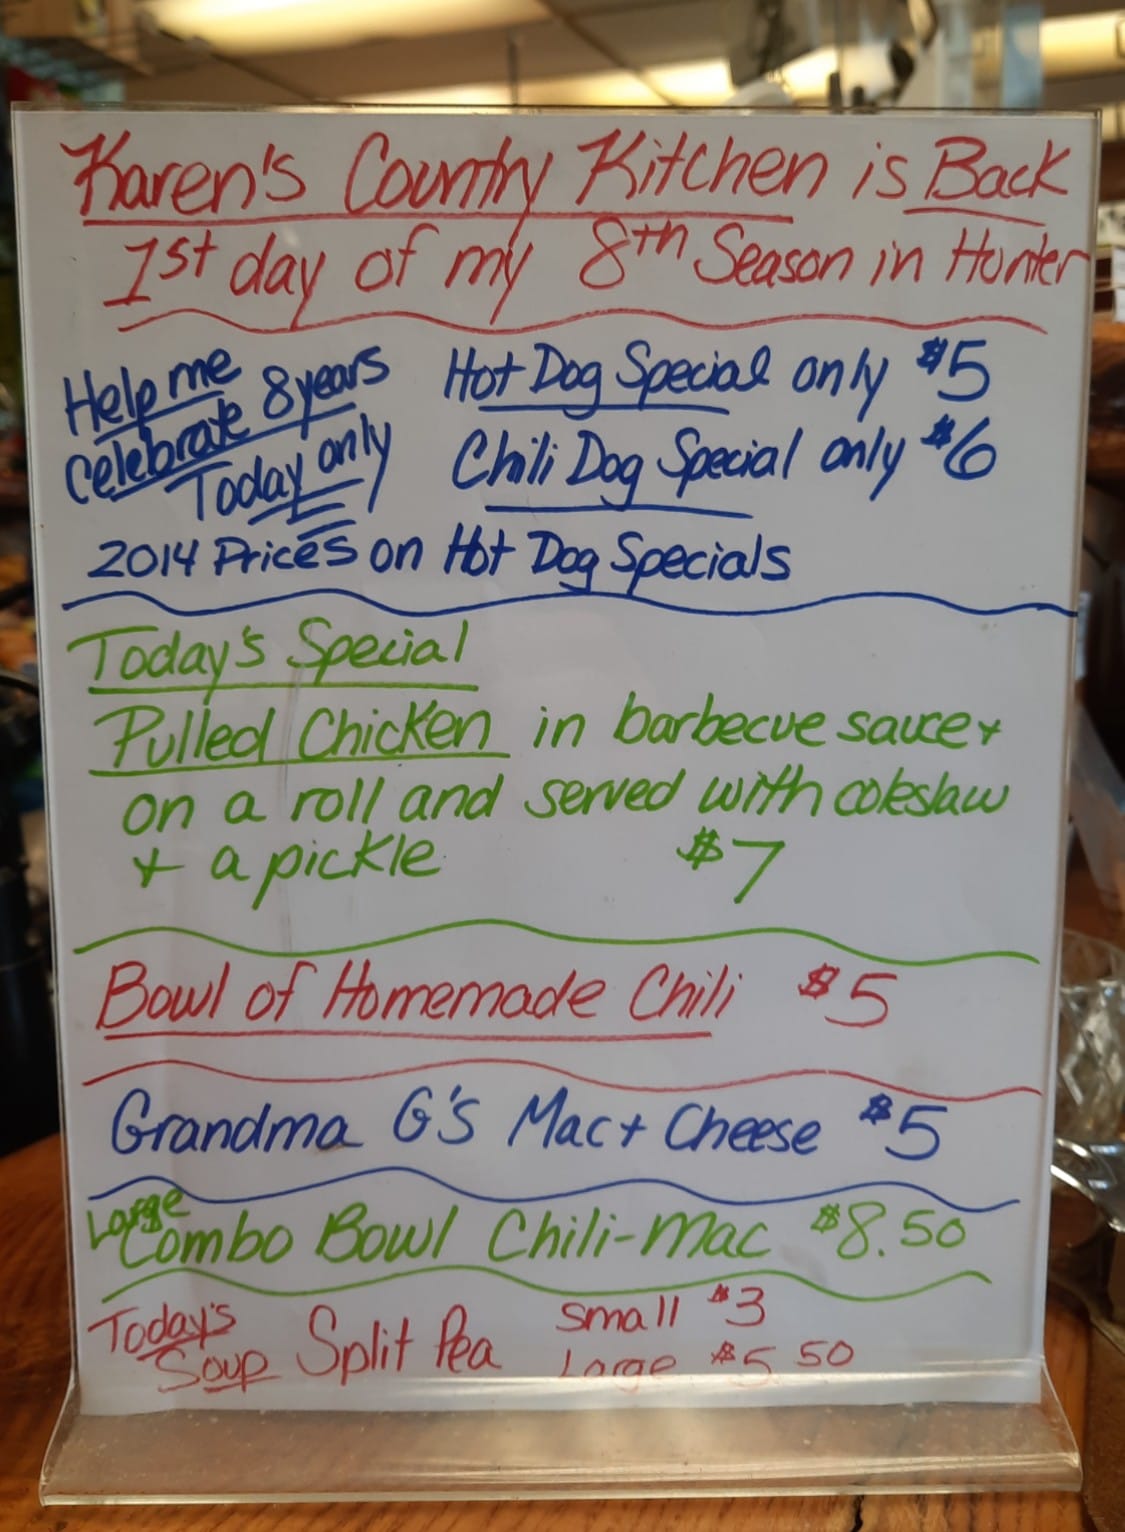 Karen's Country Kitchen is Back
1st day of my 8th Season in Hunter
Help me
Celebrate 8 years
Today only
Hot Dog Special only $5
Chili Dog Special only $6
2014 Prices on Hot Dog Specials
Today's Special
Pulled Chicken in barbecue sauce +
on a roll and served with coleslaw
+ a pickle $7
Bowl of Homemade Chili $5
Grandma G's Mac + Cheese $5
Large
Combo Bowl Chili-Mac $8.50
Today's
Soup Split Pea
Small $3
Large $5.50